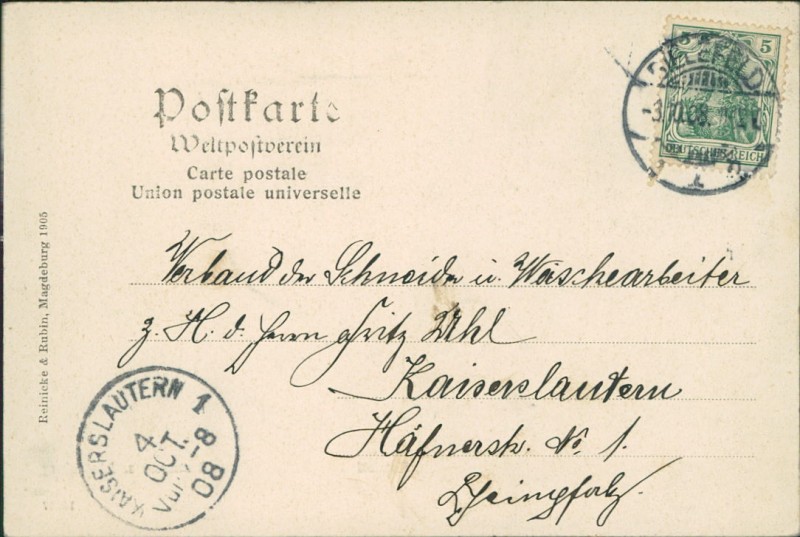 Postkarte
Weltpostverein
Carte postale
Union postale universelle
5
DEUTSCHES REICH
BIELEFELD
-3.10.08.
Verband der Schneider u. Wäschearbeiter
z. H. d. Herrn Fritz Uhl
Kaiserslautern
Häfnerstr. No 1.
Rheinpfalz.
KAISERSLAUTERN 1
4
OCT.
8-
08
Reinicke & Rubin, Magdeburg 1905